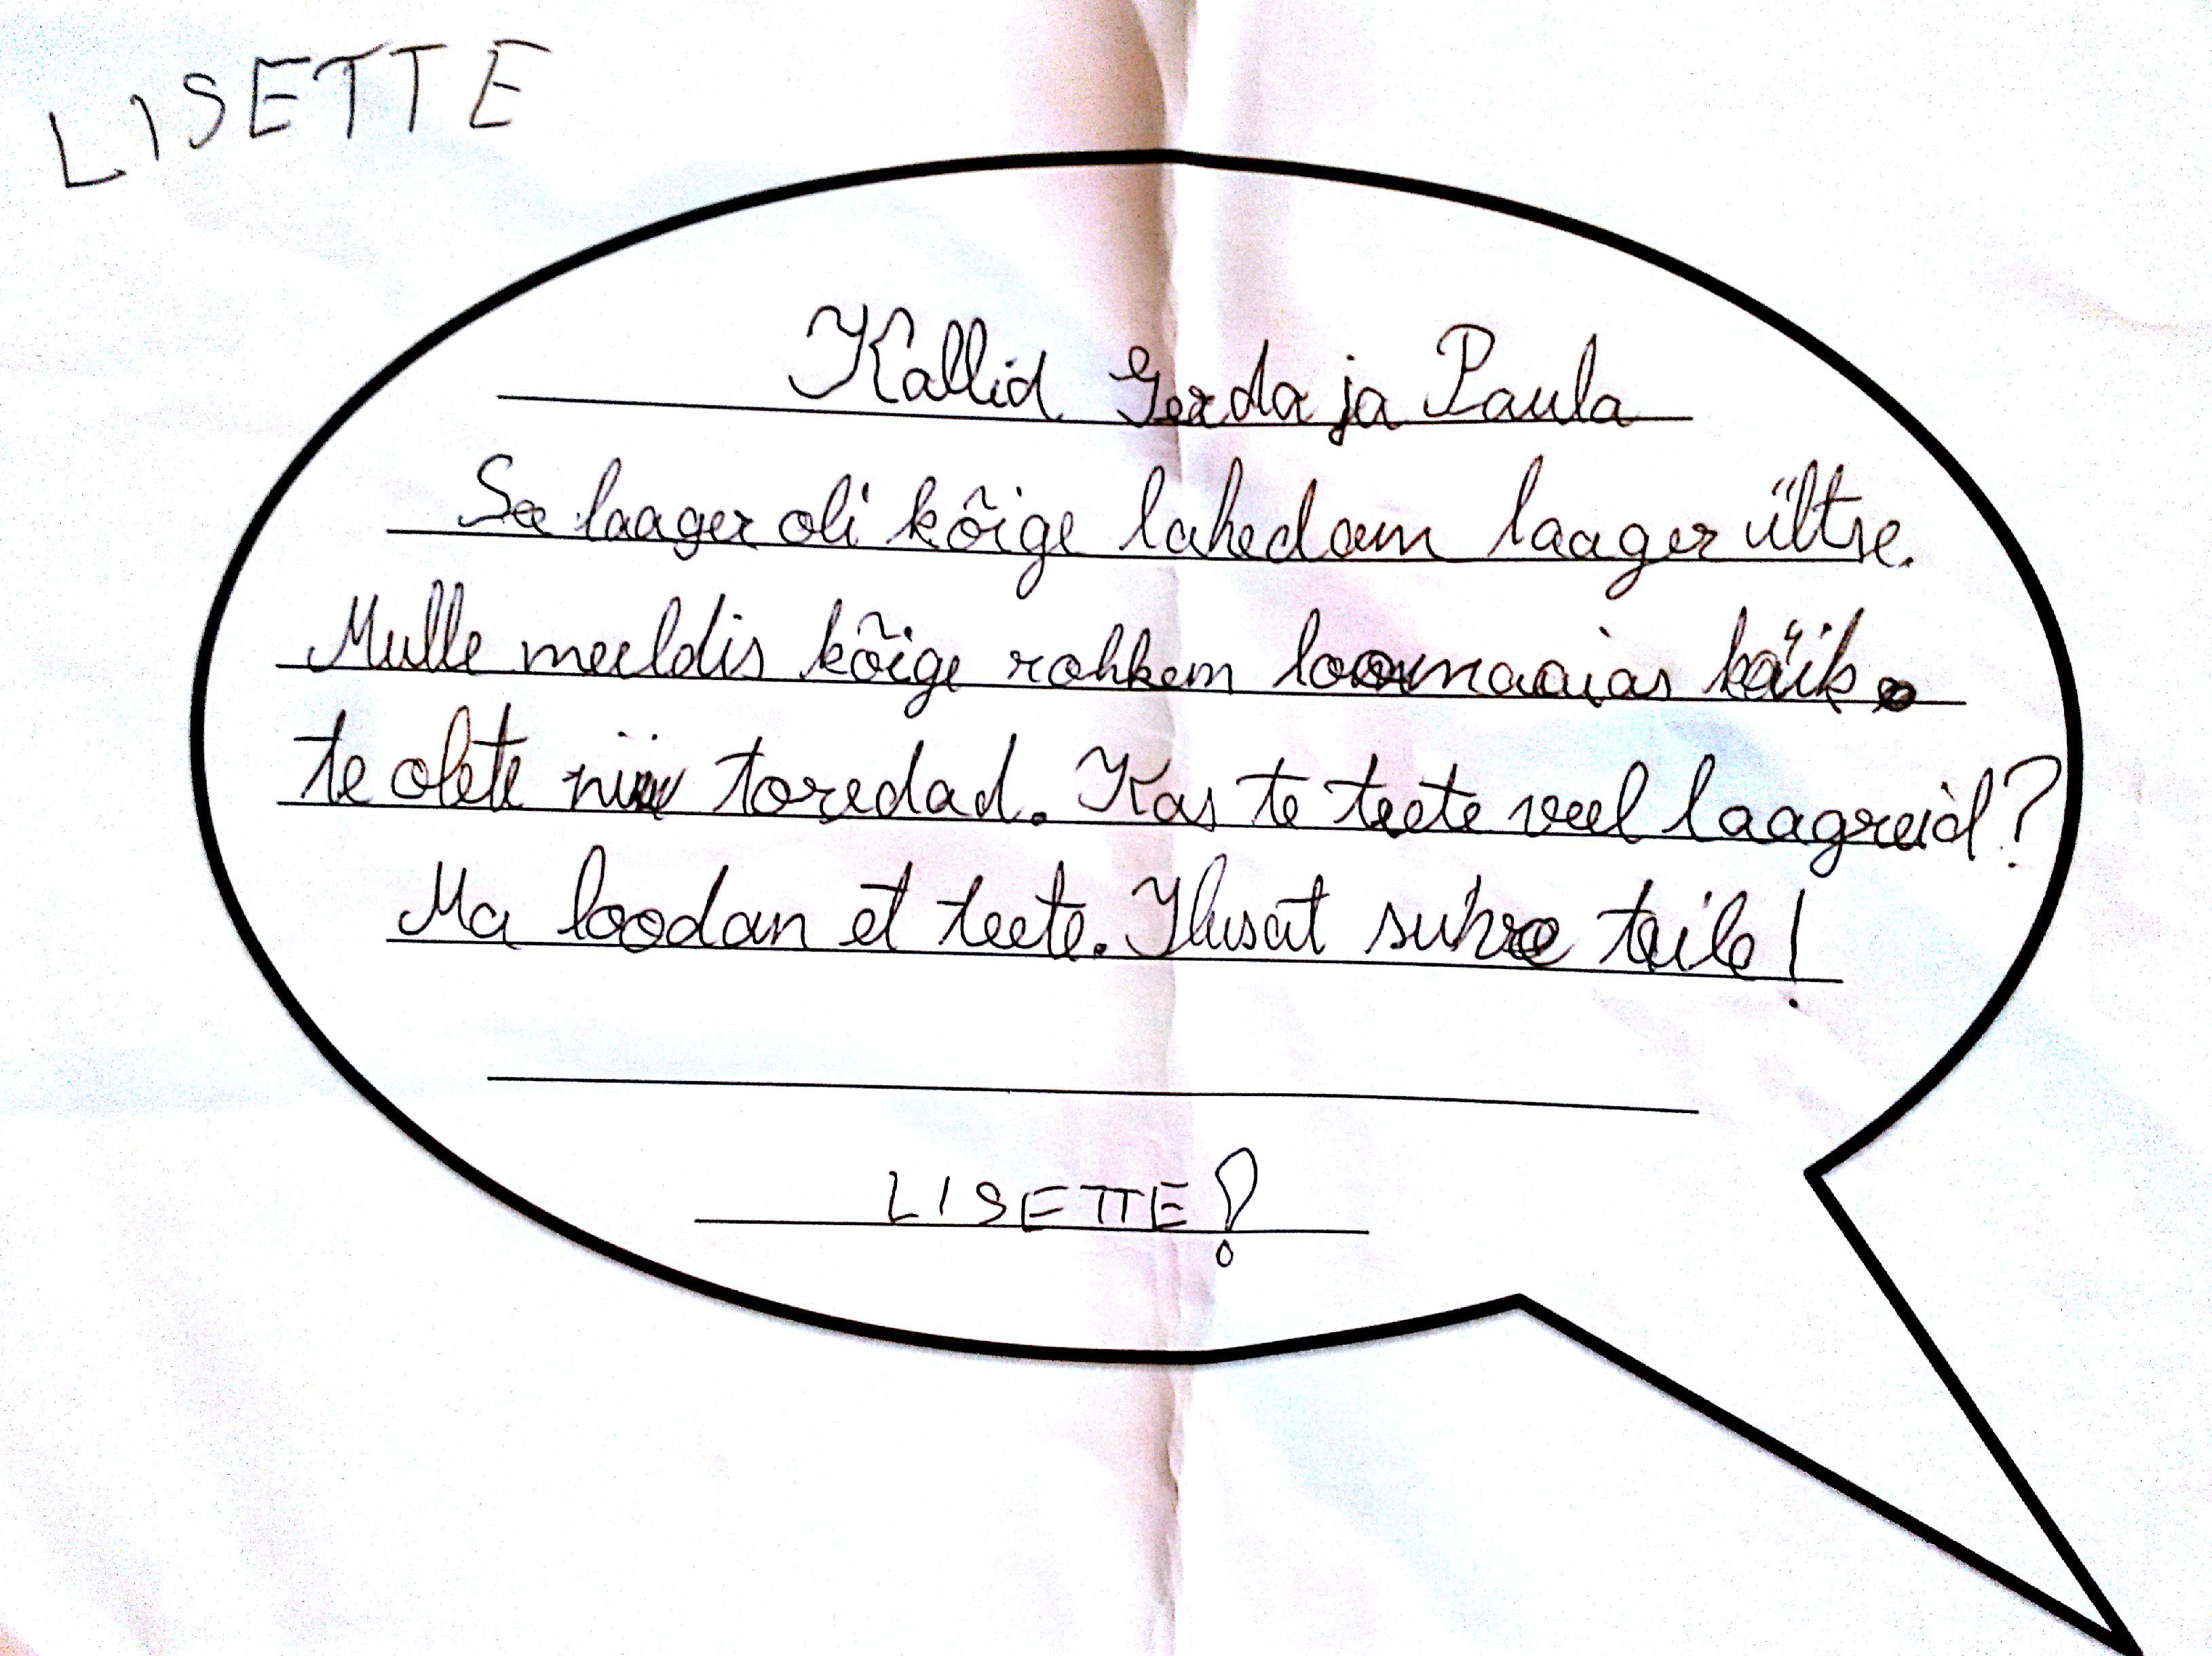 LISETTE
Kallid Gerda ja Paula
See laager oli kõige lahedam laager ültse.
Mulle meeldis kõige rohkem loomaaias käik.
te olete nii toredad. Kas te teete veel laagreid?
Ma loodan et teete. Ilusat suve teile!
LISETTE!